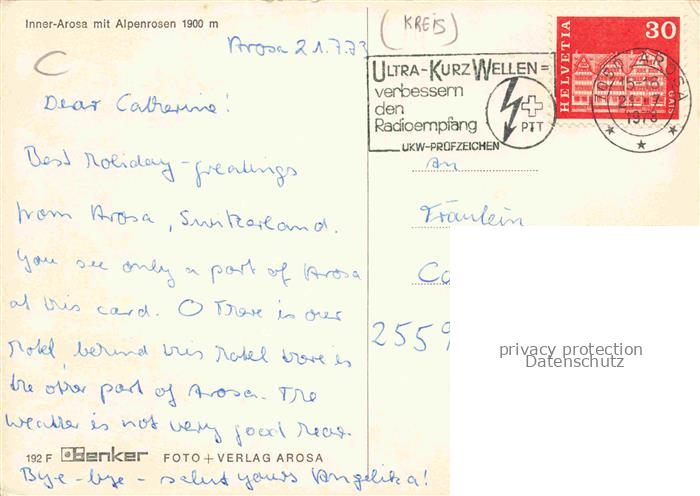 Inner-Arosa mit Alpenrosen 1900 m
(KREIS)
Arosa 21.7.73
C
Dear Catherine!
Best Holiday-greatings
from Arosa, Switzerland.
You see only a part of Arosa
at this card. O There is our
Hotel, behind this Hotel there is
the other part of Arosa. The
weather is not very good hear.
192 F Denker FOTO + VERLAG AROSA
Bye-bye - salut yours Angelika!
ULTRA-KURZWELLEN=
verbessern
den
Radioempfang
UKW-PRÜFZEICHEN
PTT
HELVETIA
30
AROSA
15-16
21.-7.
1973
An
Fräulein
Ca
2559
privacy protection
Datenschutz